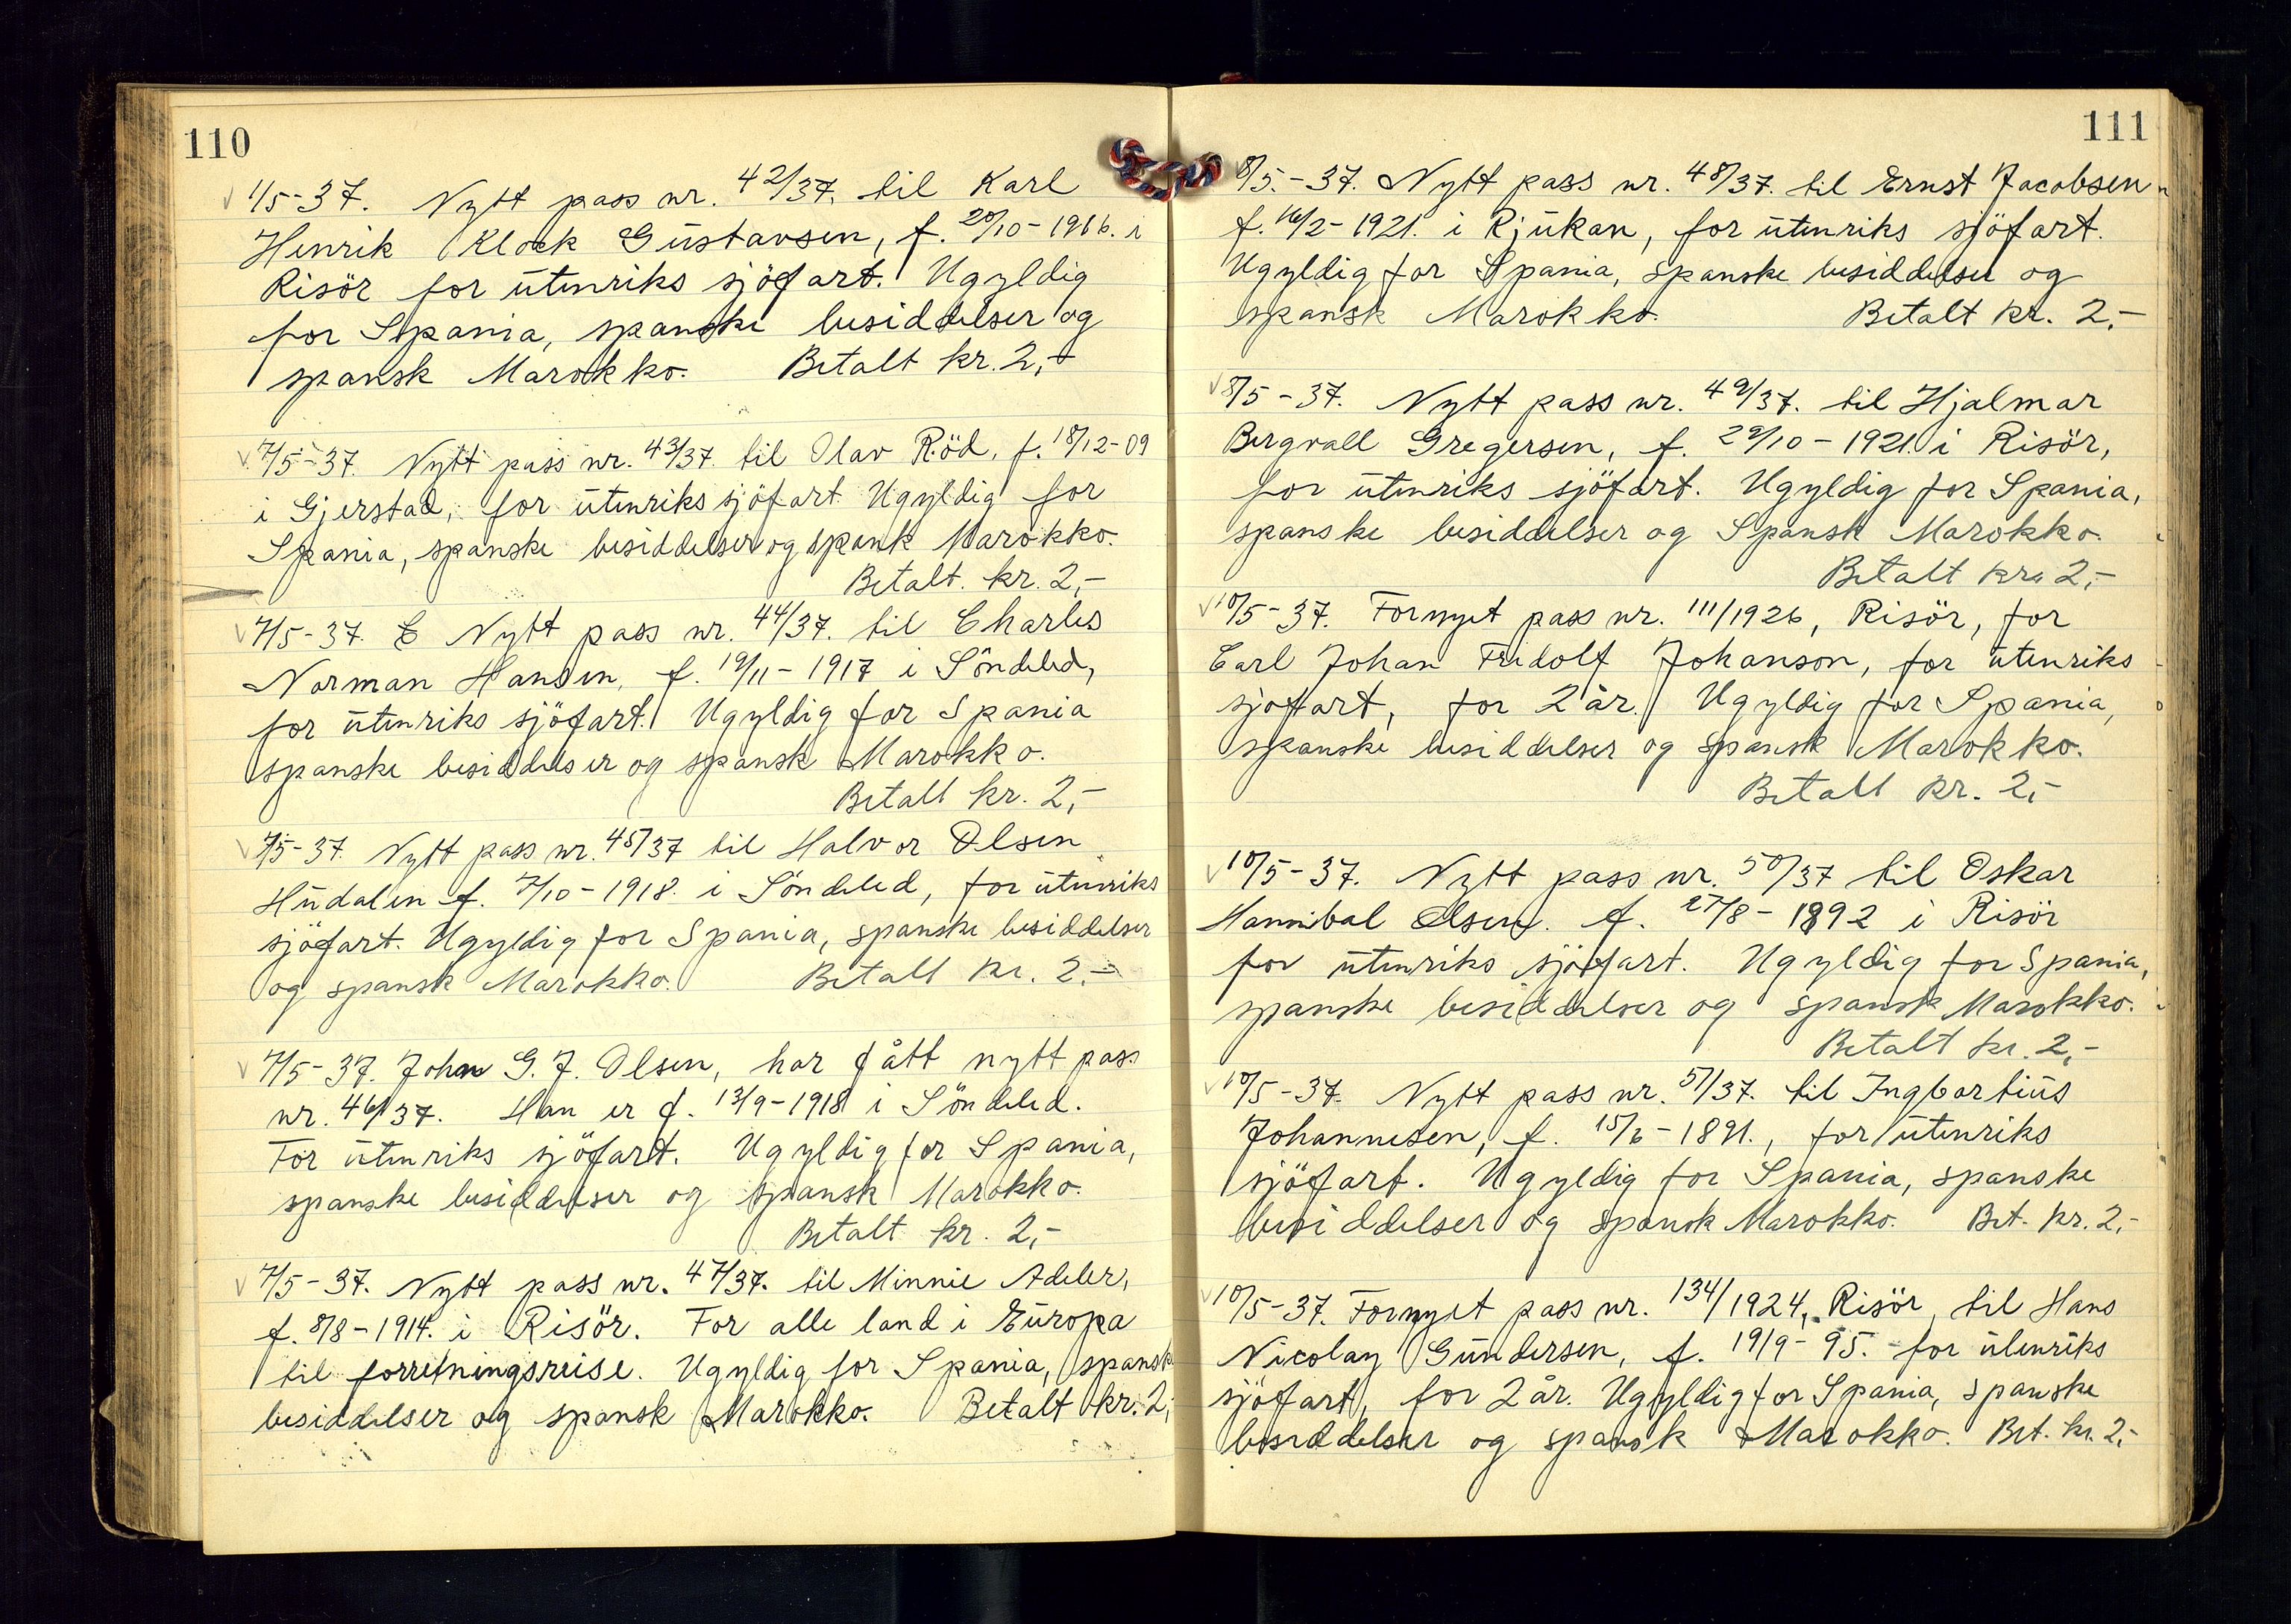 110
1/5-37. Nytt pass nr. 42/37. til Karl
Henrik Klock Gustavsen, f. 20/10-1916. i
Risör for utenriks sjöfart. Ugyldig
for Spania, spanske besiddelser og
spansk Marokko. Betalt kr. 2,-
7/5-37. Nytt pass nr. 43/37. til Olav Röd, f. 18/12-09
i Gjerstad, for utenriks sjöfart. Ugyldig for
Spania, spanske besiddelser og spank Marokko.
Betalt. kr. 2,-
7/5-37. Nytt pass nr. 44/37. til Charles
Norman Hansen, f. 19/11-1917 i Söndeled,
for utenriks sjöfart. Ugyldig for Spania
spanske besiddelser og spansk Marokko.
Betalt kr. 2,-
7/5-37. Nytt pass nr. 45/37 til Halvor Olsen
Hudalen f. 7/10-1918. i Söndeled, for utenriks
sjöfart. Ugyldig for Spania, spanske besiddelser
og spansk Marokko. Betalt kr. 2.-
7/5-37. John G. J. Olsen, har fått nytt pass
nr. 46/37. Han er f. 13/9-1918 i Söndeled.
For utenriks sjöfart. Ugyldig for Spania,
spanske besiddelser og spansk Marokko.
Betalt kr. 2,-
7/5-37. Nytt pass nr. 47/37. til Minnie Adeler,
f. 8/8-1914. i Risör. For alle land i Europa
til forretningsreise. Ugyldig for Spania, spansk
besiddelser og spansk Marokko. Betalt kr. 2,-
111
8/5.-37. Nytt pass nr. 48/37. til Ernst Jacobsen
f. 16/2-1921. i Rjukan, for utenriks sjöfart.
Ugyldig for Spania, spanske besiddelser og
spansk Marokko. Betalt kr. 2,-
8/5-37. Nytt pass nr. 49/37. til Hjalmar
Bergvall Gregersen, f. 29/10-1921. i Risör,
for utenriks sjöfart. Ugyldig for Spania,
spanske besiddelser og Spansk Marokko.
Betalt kr. 2,-
10/5-37. Fornyet pass nr. 111/1926, Risör, for
Carl Johan Fridolf Johanson, for utenriks
sjöfart, for 2 år. Ugyldig for Spania,
spanske besiddelser og spansk Marokko.
Betalt kr. 2,-
10/5-37. Nytt pass nr. 50/37 til Oskar
Hannibal Olsen. f. 27/8-1892 i Risör
for utenriks sjöfart. Ugyldig for Spania,
spanske besiddelser og spansk Marokko.
Betalt kr. 2,-
10/5-37. Nytt pass nr. 51/37. til Ingbartius
Johannesen, f. 15/6-1891., for utenriks
sjöfart. Ugyldig for Spania, spanske
besiddelser og spansk Marokko. Bet. kr. 2,-
10/5-37. Fornyet pass nr. 134/1924, Risör, til Hans
Nicolay Gundersen, f. 19/9-95. for utenriks
sjöfart, for 2 år. Ugyldig for Spania, spanske
besiddelser og spansk Marokko. Bet. kr. 2,-